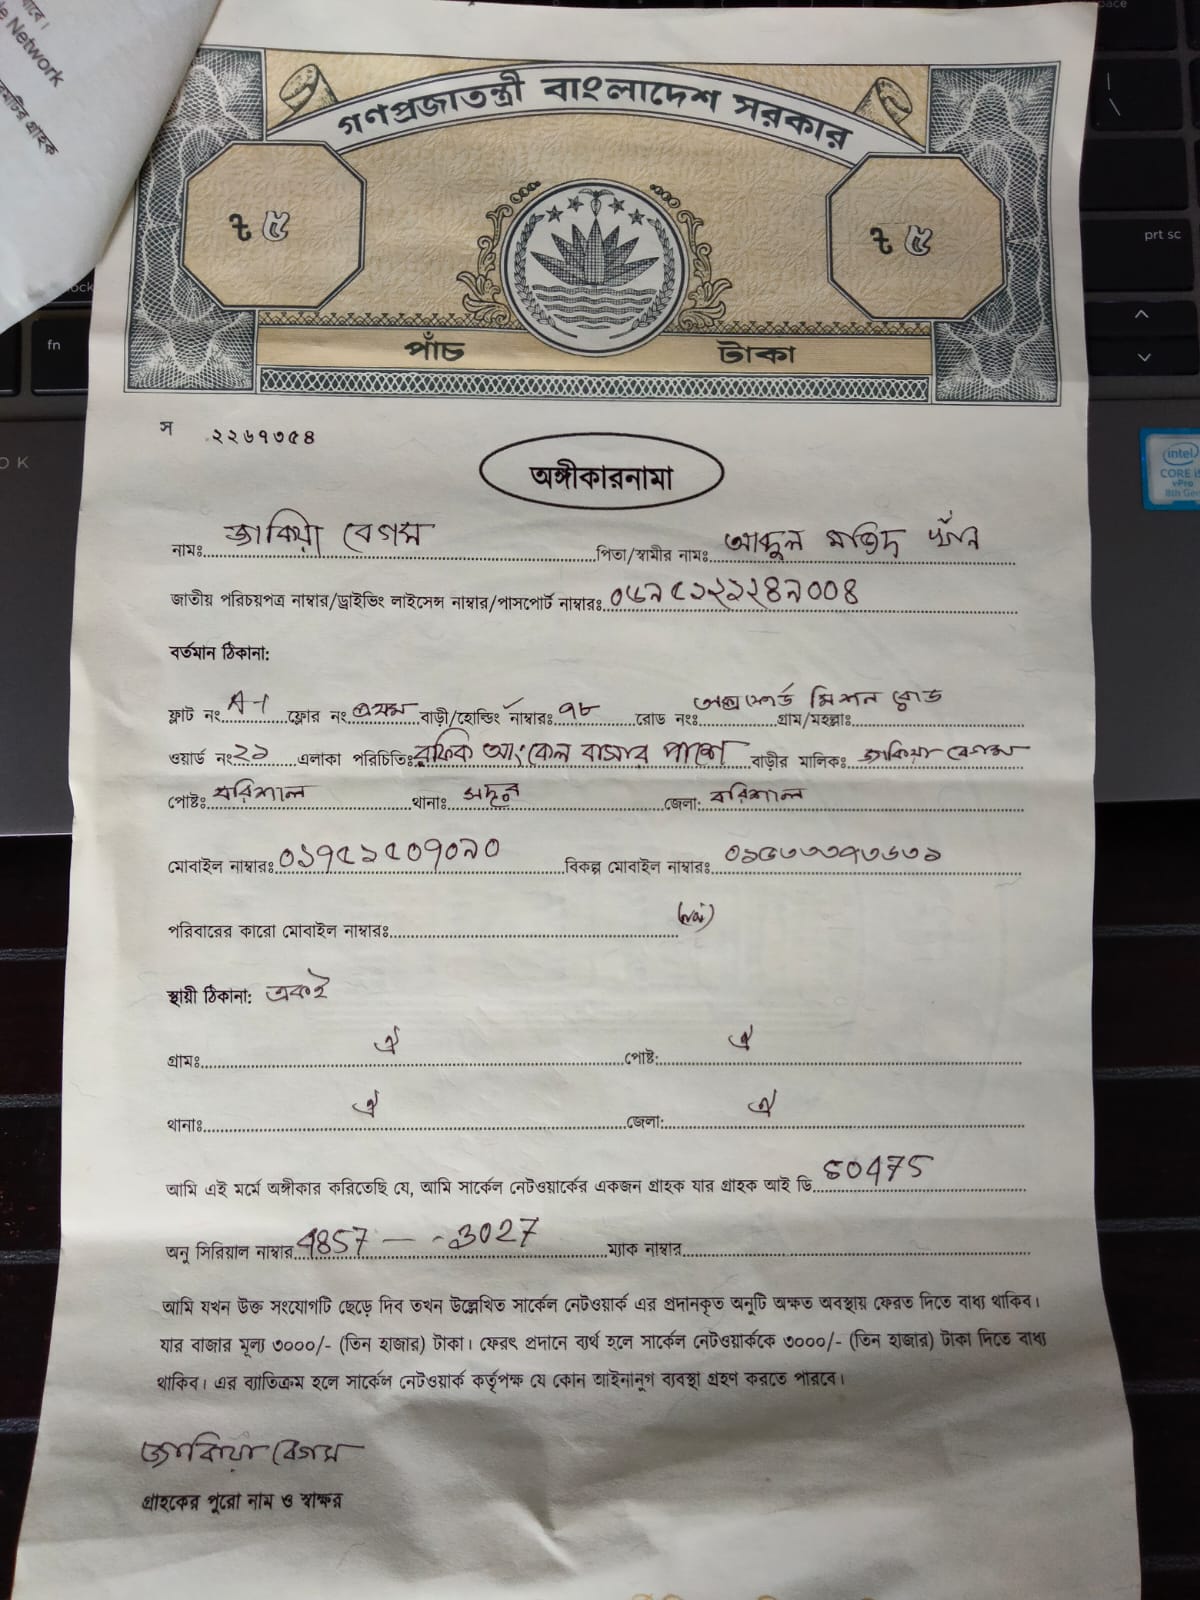 গণপ্রজাতন্ত্রী বাংলাদেশ সরকার
৳ ৫ ৳ ৫
পাঁচ টাকা
স ২২৬৭৩৫৪
অঙ্গীকারনামা
নামঃ জাকিয়া বেগম পিতা/স্বামীর নামঃ আব্দুল মজিদ খাঁন
জাতীয় পরিচয়পত্র নাম্বার/ড্রাইভিং লাইসেন্স নাম্বার/পাসপোর্ট নাম্বারঃ
বর্তমান ঠিকানা:
ফ্লাট নং A-1 ফ্লোর নং প্রথম বাড়ী/হোল্ডিং নাম্বারঃ ৭৮ রোড নংঃ অক্সফোর্ড মিশন রোড গ্রাম/মহল্লাঃ
ওয়ার্ড নং ২১ এলাকা পরিচিতিঃ রফিক আংকেল বাসার পাশে বাড়ীর মালিকঃ জাকিয়া বেগম
পোষ্টঃ বরিশাল থানাঃ সদর জেলা: বরিশাল
মোবাইল নাম্বারঃ বিকল্প মোবাইল নাম্বারঃ
পরিবারের কারো মোবাইল নাম্বারঃ
স্থায়ী ঠিকানা: একই
গ্রামঃ ঐ পোষ্ট: ঐ
থানাঃ ঐ জেলা: ঐ
আমি এই মর্মে অঙ্গীকার করিতেছি যে, আমি সার্কেল নেটওয়ার্কের একজন গ্রাহক যার গ্রাহক আই ডি
অনু সিরিয়াল নাম্বার 4857 — - 3027 ম্যাক নাম্বার
আমি যখন উক্ত সংযোগটি ছেড়ে দিব তখন উল্লেখিত সার্কেল নেটওয়ার্ক এর প্রদানকৃত অনুটি অক্ষত অবস্থায় ফেরত দিতে বাধ্য থাকিব।
যার বাজার মূল্য ৩০০০/- (তিন হাজার) টাকা। ফেরৎ প্রদানে ব্যর্থ হলে সার্কেল নেটওয়ার্ককে ৩০০০/- (তিন হাজার) টাকা দিতে বাধ্য
থাকিব। এর ব্যাতিক্রম হলে সার্কেল নেটওয়ার্ক কর্তৃপক্ষ যে কোন আইনানুগ ব্যবস্থা গ্রহণ করতে পারবে।
জাকিয়া বেগম
গ্রাহকের পুরো নাম ও স্বাক্ষর
Network
গ্রাহক
fn
prt sc
intel
CORE i5
vPro
8th Gen